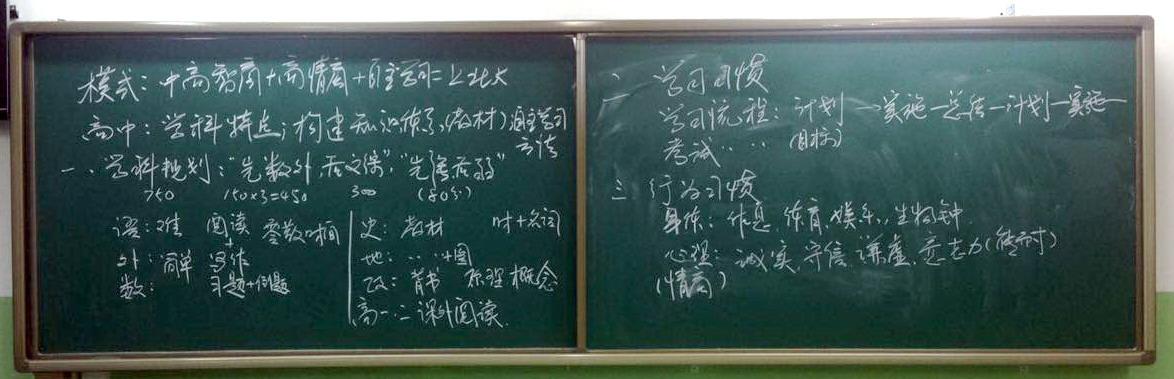 模式：中高智商+高情商+自主学习=上北大
高中：学科特点；构建知识体系（教材）自主学习
方法
一、学科规划："先数外，后文综"，"先强后弱"
750 150×3=450 300 (80分)
语：难 阅读 零散时间
外：简单 写作
数： 习题+例题
史：教材 时+名词
地：‥ ‥+图
政：背书 原理概念
高一、二课外阅读。
二 学习习惯
学习流程：计划—实施—总结—计划—实施—
考试‥ ‥ (目标)
三 行为习惯
身体：作息，体育，娱乐，生物钟
心理：诚实，守信，谦虚，意志力
(情商)